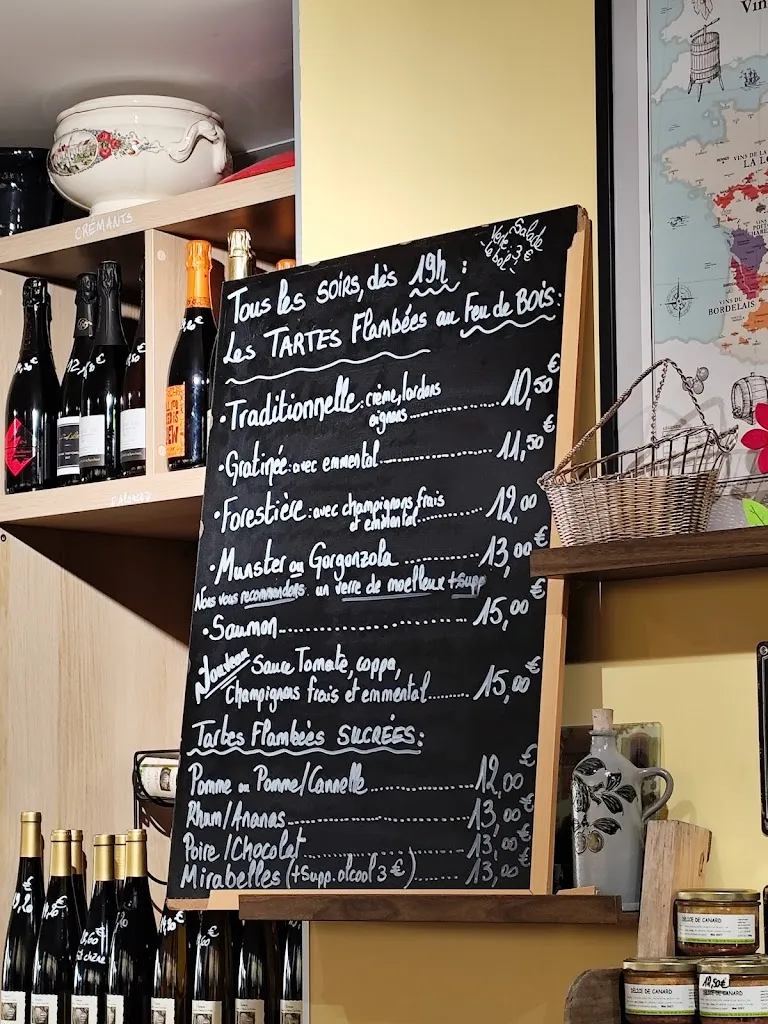 Vin
CRÉMANTS
VINS DE LA
LA LO
VINS DU
BORDELAIS
Salade
Verte: 3 €
le bol
Tous les soirs, dès 19h :
Les TARTES Flambées au Feu de Bois:
• Traditionnelle: crème, lardons
oignons ........ 10,50 €
• Gratinée: avec emmental ........ 11,50 €
• Forestière: avec champignons frais
et emmental ........ 12,00 €
• Munster ou Gorgonzola ........ 13,00 €
Nous vous recommandons un verre de moelleux + supp
• Saumon ........ 15,00 €
Nouveau Sauce Tomate, coppa,
Champignons frais et emmental ........ 15,00 €
Tartes Flambées SUCRÉES:
Pomme ou Pomme/Cannelle ........ 12,00 €
Rhum/Ananas ........ 13,00 €
Poire/Chocolat ........ 13,00 €
Mirabelles (+Supp. alcool 3 €) ........ 13,00 €
DÉLICE DE CANARD
DÉLICE DE CANARD
12,50€